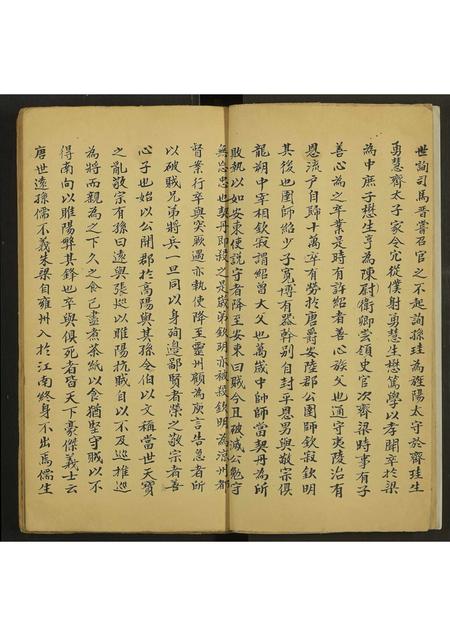 世詢司馬晋嘗召官之不起詢孫珪為旌陽太守於齊珪生
勇慧齊太子家令冗從僕射勇慧生懋篤學以孝聞卒於梁
為中庶子懋生亨為陳尉衛卿嘗領史官次齊梁時事有子
善心為之卒業是時有許紹者善心族父也通守夷陵治有
恩流户自歸十萬卒有勞於唐爵安陸郡公圉師欽寂欽明
其後也圉師紹少子寬博有器幹别自封平恩男與敬宗俱
龍朔中宰相欽寂謂紹曽大父也萬歲中帥師當契丹為所
敗執以如安東使説守者降至安東曰賊今且破滅公勉守
無忘忠也契丹即殺之是歲弟欽明亦被殺欽明為凉州都
督業行卒與突厥遇亦執使降至靈州顧為庾言告急者所
以破賊兄弟將兵一旦同以身殉邊鄙賢者榮之敬宗者善
心子也始以公開郡於高陽與其孫令伯以文稱當世天寶
之亂敬宗有孫曰遠與張廵以睢陽抗賊自以不及廵推廵
為將而親為之下久之食已盡煮茶紙以食猶堅守賊以不
得南向以睢陽弊其鋒也卒與俱死者皆天下豪傑義士云
唐世遠孫儒不義朱梁自雍州入於江南終身不出焉儒生